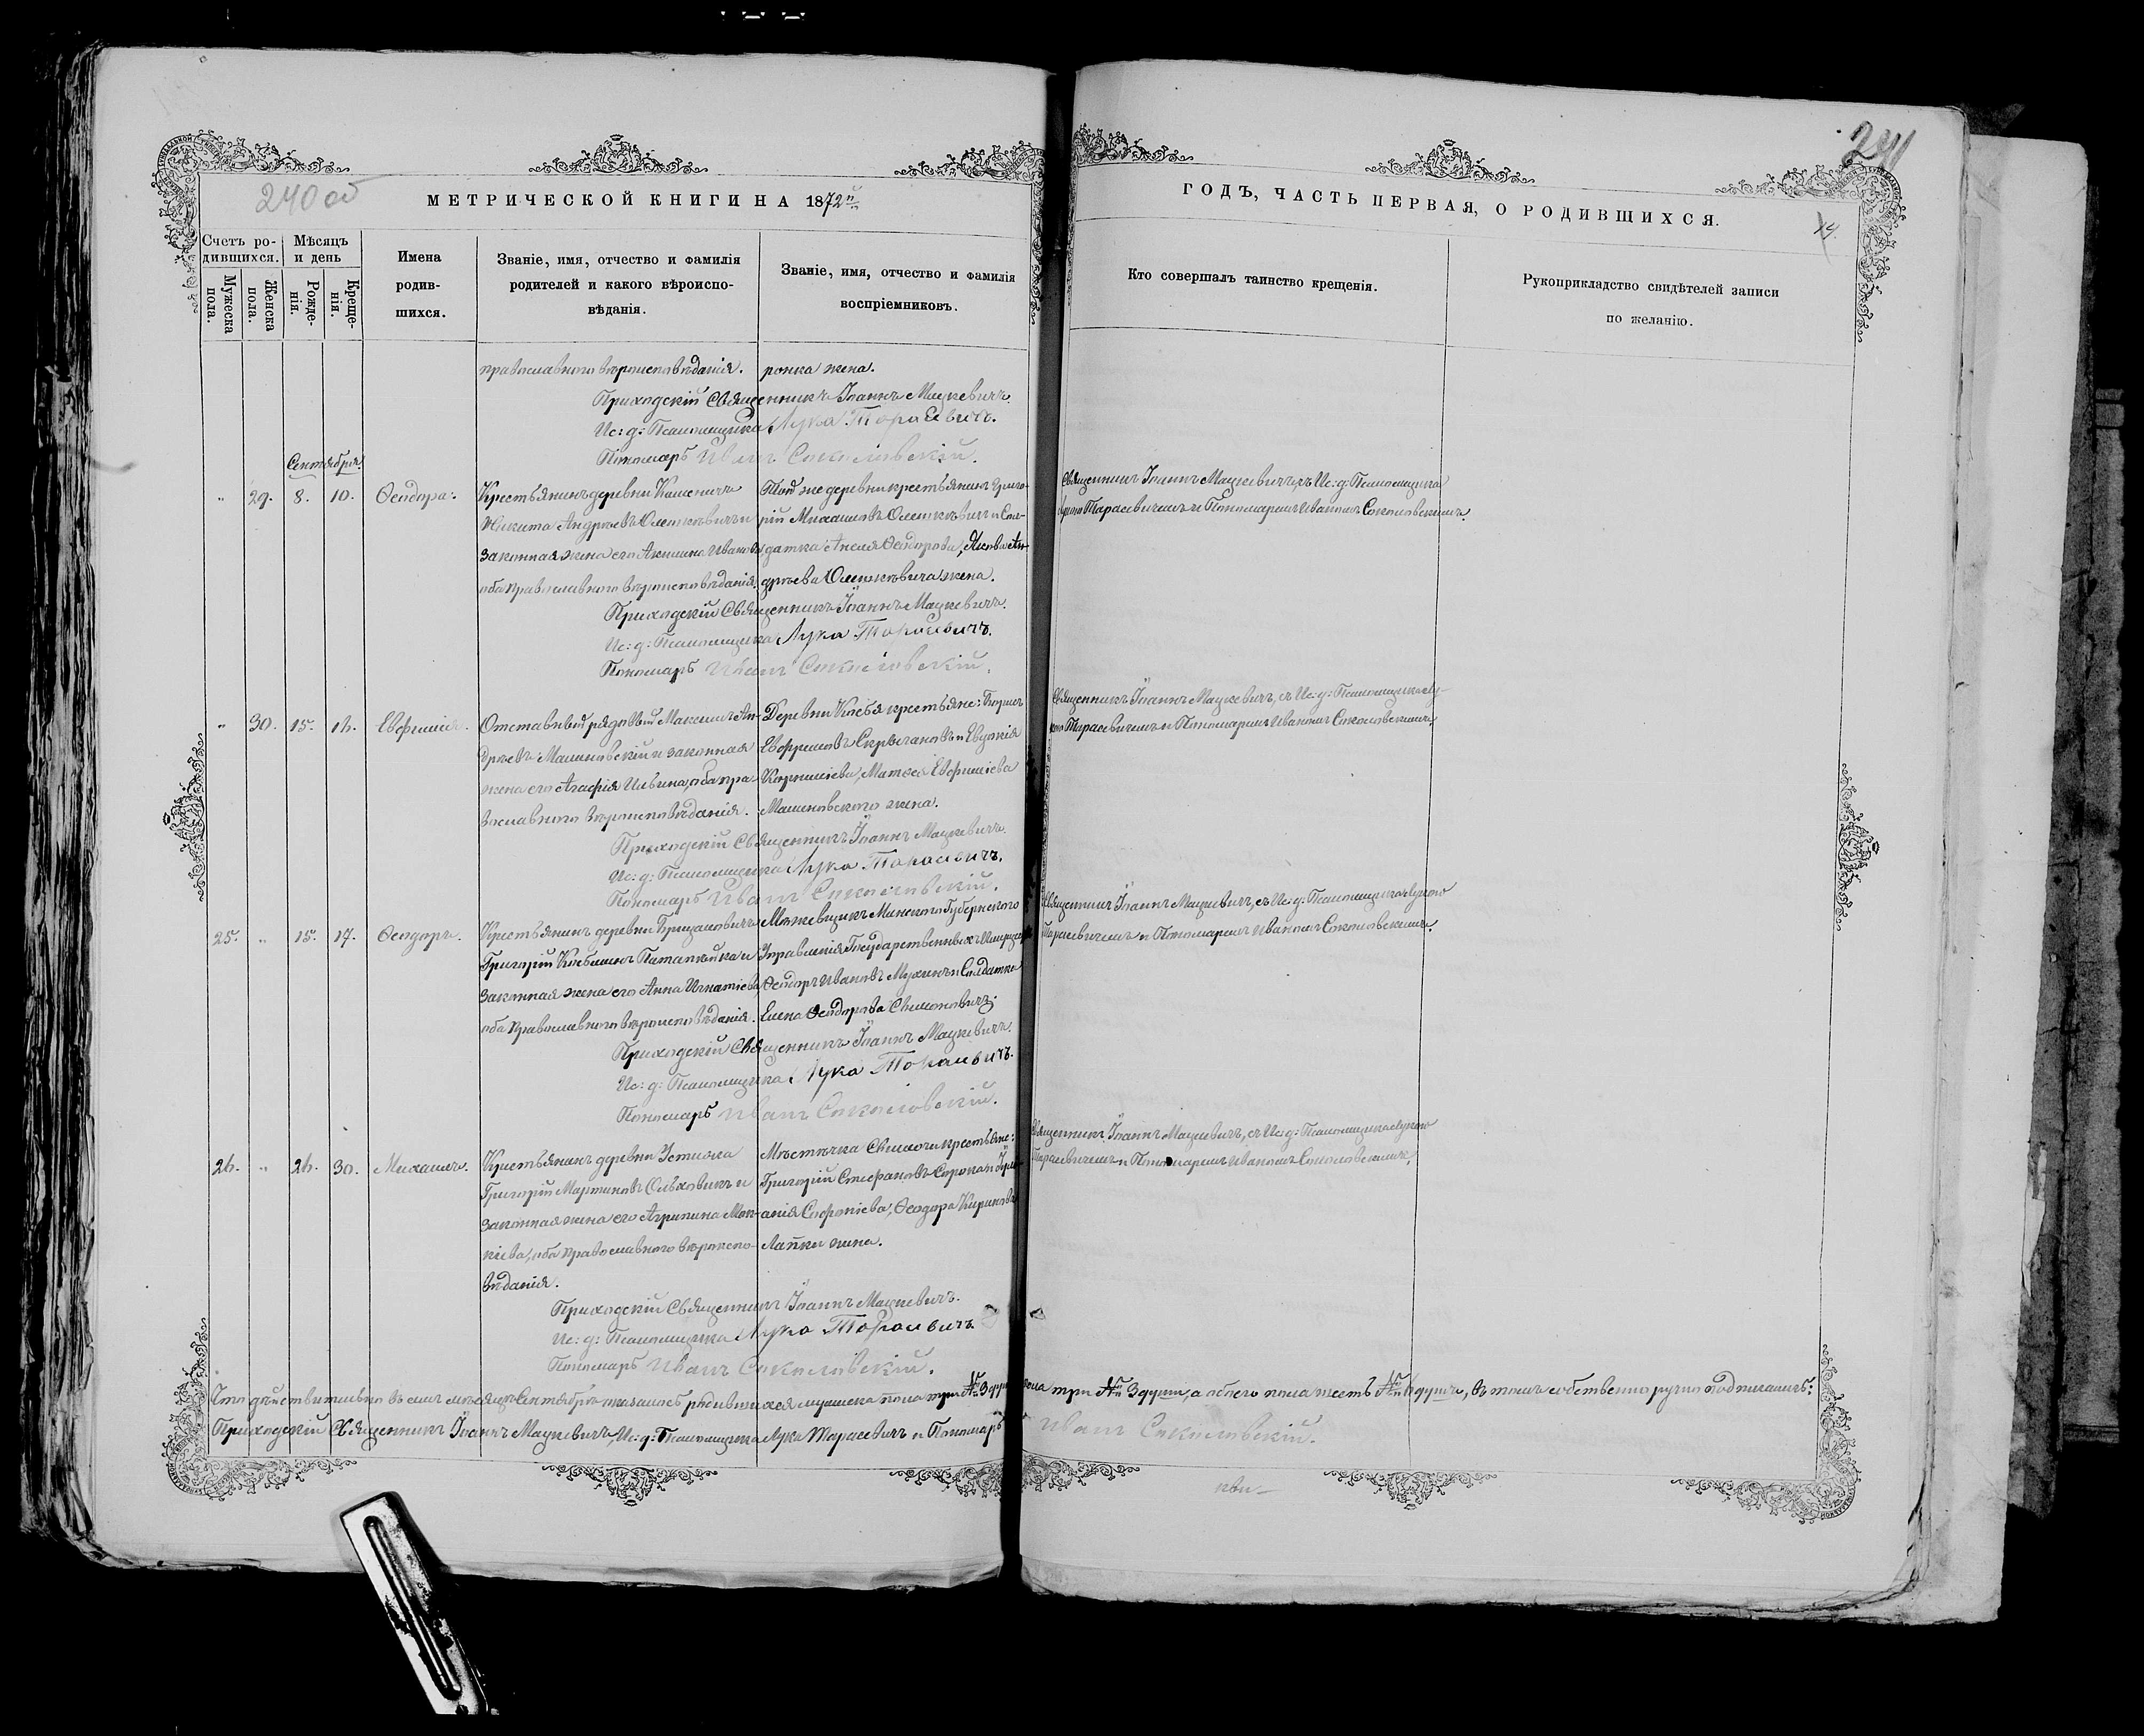 240 об
241
МЕТРИЧЕСКОЙ КНИГИ НА 1872й
ГОДЪ, ЧАСТЬ ПЕРВАЯ, О РОДИВШИХСЯ.
Счетъ ро-
дившихся.
Мѣсяцъ
и день
Мужеска
пола.
Женска
пола.
Рожде-
нія.
Креще-
нія.
Имена
родив-
шихся.
Званіе, имя, отчество и фамилія
родителей и какого вѣроиспо-
вѣданія.
Званіе, имя, отчество и фамилія
воспріемниковъ.
Кто совершалъ таинство крещенія.
Рукоприкладство свидѣтелей записи
по желанію.
православнаго вѣроисповѣданія.
ронка жена.
Приходскій Священникъ Іоаннъ Мацкевичъ.
Ис: д: Псаломщика Лука Тарасевичъ.
Пономарь Иванъ Соколовскій.
Сентября
" 29. 8. 10. Ѳеодора.
Крестьянинъ деревни
Никита Андреевъ Олешкевичъ и
законная жена его Акилина Иванова
оба православнаго вѣроисповѣданія.
Той же деревни крестьянинъ Григо-
рій Михаиловъ Олешкевичъ и Сол-
датка Ѳеодорова, Якова Ан-
дреева Олешкевича жена.
Священникъ Іоаннъ Мацкевичъ, съ Ис: д: Псаломщика
Тарасевичемъ и Пономаремъ Иваномъ Соколовскимъ.
Приходскій Священникъ Іоаннъ Мацкевичъ.
Ис: д: Псаломщика Лука Тарасевичъ.
Пономарь Иванъ Соколовскій.
" 30. 15. 16. Евфимія.
Отставный рядовый Максимъ Ан-
дреевъ Машновскій и законная
жена его Агафія Ильина, оба пра-
вославнаго вѣроисповѣданія.
Деревни крестьяне:
и Евдокія
Матѳея Евфиміева
Машновскаго жена.
Священникъ Іоаннъ Мацкевичъ, съ Ис: д: Псаломщика Лу-
кою Тарасевичемъ и Пономаремъ Иваномъ Соколовскимъ.
Приходскій Священникъ Іоаннъ Мацкевичъ.
Ис: д: Псаломщика Лука Тарасевичъ.
Пономарь Иванъ Соколовскій.
25. " 15. 17. Ѳеодоръ.
Крестьянинъ деревни
Григорій Козьминъ и
законная жена его Анна Игнатіева,
оба православнаго вѣроисповѣданія.
Межевщикъ Минскаго Губернскаго
Управленія Государственныхъ Имуществъ
Ѳеодоръ Ивановъ Мухинъ и Солдатка
Елена Ѳеодорова Симоновичъ.
Священникъ Іоаннъ Мацкевичъ, съ Ис: д: Псаломщика Лукою
Тарасевичемъ и Пономаремъ Иваномъ Соколовскимъ.
Приходскій Священникъ Іоаннъ Мацкевичъ.
Ис: д: Псаломщика Лука Тарасевичъ.
Пономарь Иванъ Соколовскій.
26. " 26. 30. Михаилъ.
Крестьянинъ деревни Устижа
Григорій Мартиновъ Ольховикъ и
законная жена его Агрипина Мок-
кіева, оба православнаго вѣроиспо-
вѣданія.
Мѣстечка Свислочи крестьяне:
Григорій Стефановъ Сорока и
Софоніева, Ѳеодора Кирикова
Лапки жена.
Священникъ Іоаннъ Мацкевичъ, съ Ис: д: Псаломщика Лукою
Тарасевичемъ и Пономаремъ Иваномъ Соколовскимъ.
Приходскій Священникъ Іоаннъ Мацкевичъ.
Ис: д: Псаломщика Лука Тарасевичъ.
Пономарь Иванъ Соколовскій.
Что дѣйствительно въ семъ мѣсяцѣ Сентябрѣ оказалось родившихся мужеска пола три № 3 пола три № 3 души, а обоего пола шесть № 6 душъ, въ томъ собственно ручно подписались:
Приходскій Священникъ Іоаннъ Мацкевичъ, Ис: д: Псаломщика Лука Тарасевичъ и Пономарь Иванъ Соколовскій.